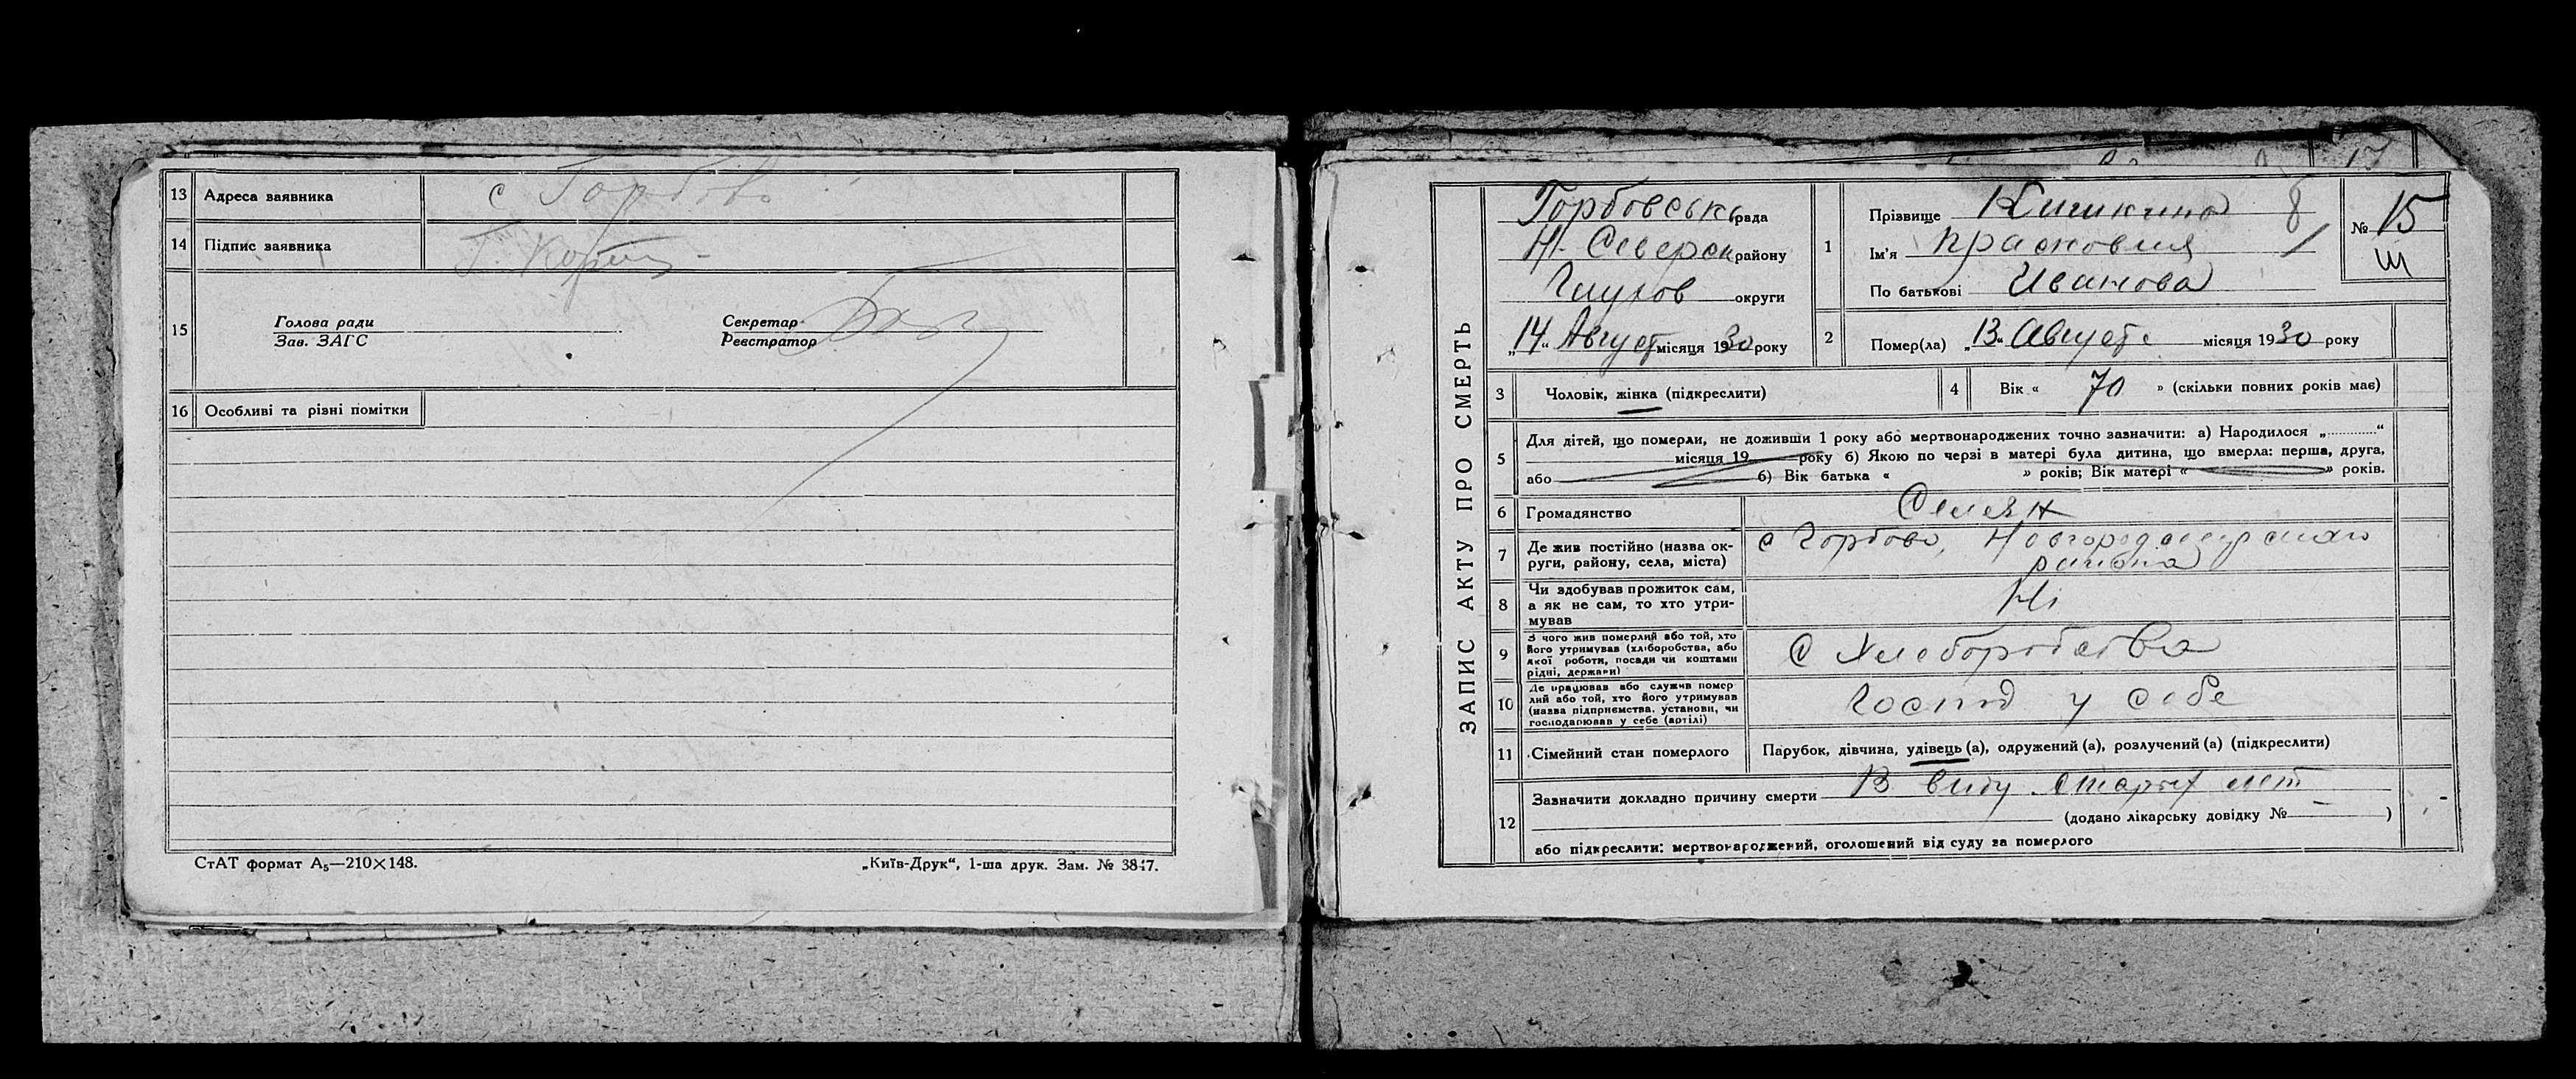 13 Адреса заявника с Горбово
14 Підпис заявника Г.
15 Голова ради
Зав. ЗАГС
Секретар
Реєстратор
16 Особливі та різні помітки
СтАТ формат А₅—210×148.
„Київ-Друк“, 1-ша друк. Зам. № 3847.
ЗАПИС АКТУ ПРО СМЕРТЬ
Горбовська рада
Н-Северск району
Глухов округи
„14“ Август місяця 1930 року
1 Прізвище 8
Ім'я Прасковия
По батькові Иванова
№ 15
Ш
2 Помер(ла) „13“ Августа місяця 1930 року
3 Чоловік, жінка (підкреслити)
4 Вік « 70 » (скільки повних років має)
5 Для дітей, що померли, не доживши 1 року або мертвонароджених точно зазначити: а) Народилося „............“
місяця 19 року б) Якою по черзі в матері була дитина, що вмерла: перша, друга,
або б) Вік батька « » років; Вік матері « » років.
6 Громадянство Селян
7 Де жив постійно (назва округи, району, села, міста) с Горбово, Новгородсеверскаго
района
8 Чи здобував прожиток сам,
а як не сам, то хто утри-
мував Ні
9 З чого жив померлий або той, хто
його утримував (хліборобства, або
якої роботи, посади чи коштами
рідні, держави) С Хлеборобства
10 Де працював або служив помер
лий або той, хто його утримував
(назва підприємства, установи, чи
господарював у себе (артілі) Госпд у себе
11 Сімейний стан померлого Парубок, дівчина, удівець (а), одружений (а), розлучений (а) (підкреслити)
12 Зазначити докладно причину смерти В виду старых лет
(додано лікарську довідку № — )
або підкреслити: мертвонароджений, оголошений від суду за померлого